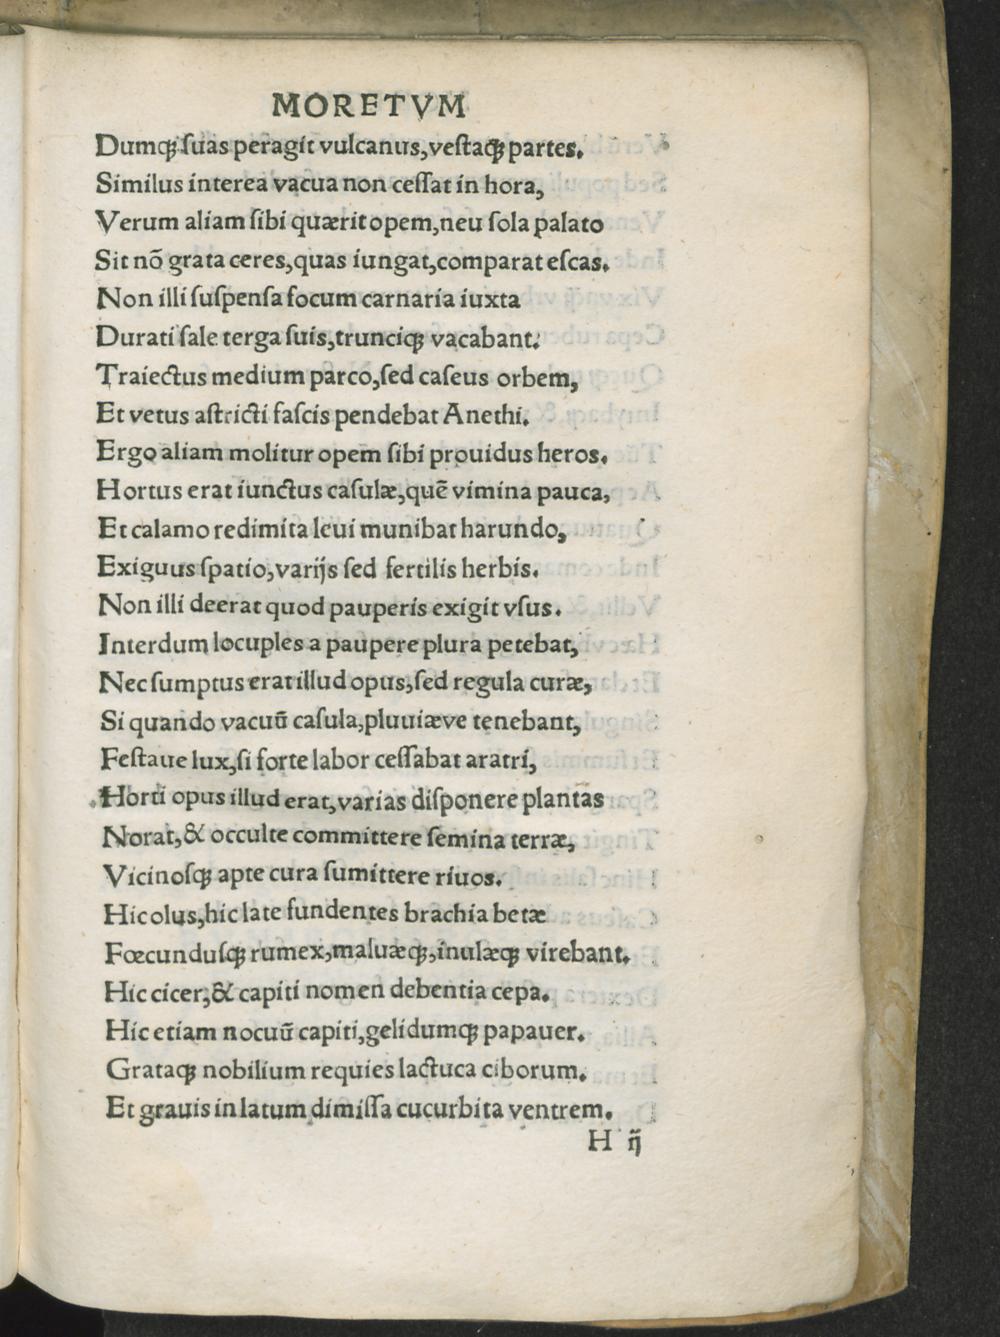 MORETVM
Dumqꝫ ſuas peragit vulcanus,veſtaqꝫ partes.
Similus interea vacua non ceſſat in hora,
Verum aliam ſibi quærit opem,neu ſola palato
Sit nõ grata ceres,quas iungat,comparat eſcas.
Non illi ſuſpenſa focum carnaria iuxta
Durati ſale terga ſuis,trunciqꝫ vacabant.
Traiectus medium parco,ſed caſeus orbem,
Et vetus aſtricti faſcis pendebat Anethi.
Ergo aliam molitur opem ſibi prouidus heros.
Hortus erat iunctus caſulæ,quẽ vimina pauca,
Et calamo redimita leui munibat harundo,
Exiguus ſpatio,varijs ſed fertilis herbis.
Non illi deerat quod pauperis exigit vſus.
Interdum locuples a paupere plura petebat,
Nec ſumptus erat illud opus,ſed regula curæ,
Si quando vacuũ caſula,pluuiæve tenebant,
Feſtaue lux,ſi forte labor ceſſabat aratri,
Horti opus illud erat,varias diſponere plantas
Norat,& occulte committere ſemina terræ,
Vicinoſqꝫ apte cura ſumittere riuos.
Hic olus,hic late fundentes brachia betæ
Fœcunduſqꝫ rumex,maluæqꝫ,inulæqꝫ virebant.
Hic cicer,& capiti nomen debentia cepa.
Hic etiam nocuũ capiti,gelidumqꝫ papauer.
Grataqꝫ nobilium requies lactuca ciborum.
Et grauis in latum dimiſſa cucurbita ventrem.
H ij